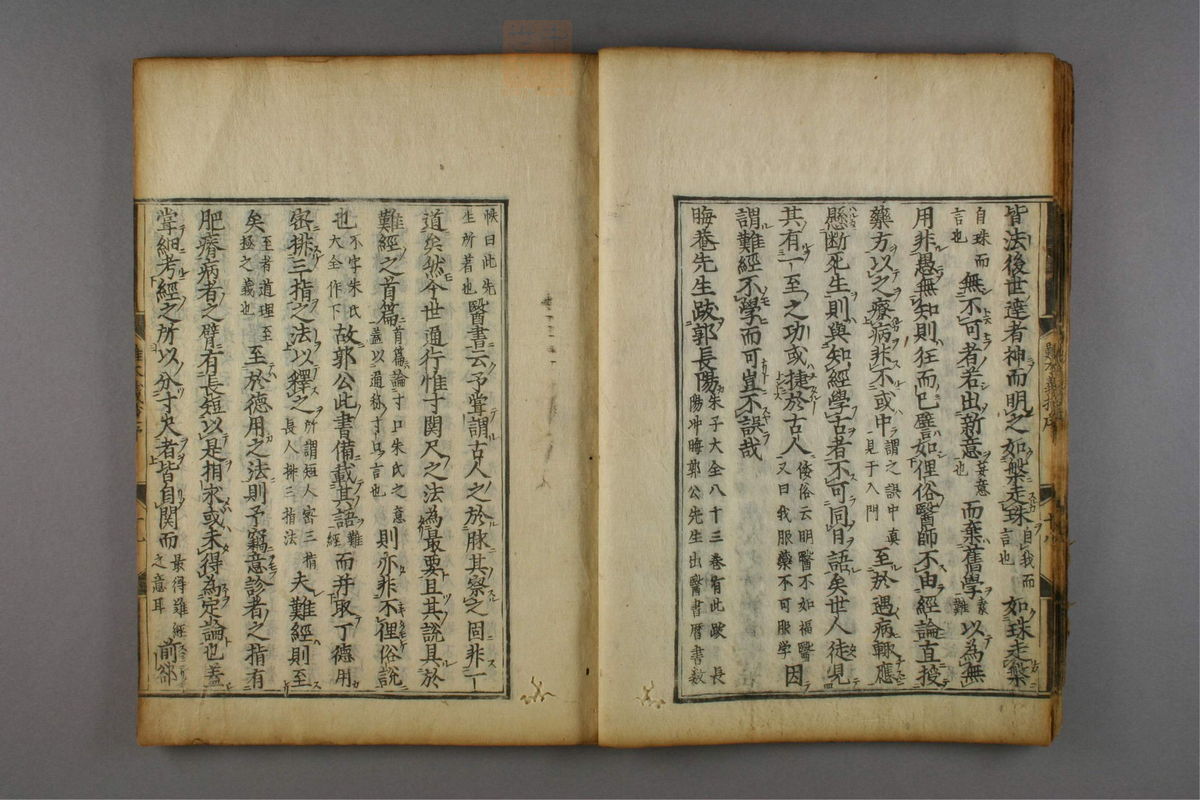 皆法後世達者神而明之如槃走珠自我而言也如珠走槃
自珠而言也無不可者若出新意葉意也而棄舊學棄難以為無
用非愚無知則狂而已譬如俚俗醫師不由經論直授
藥方以之療病非不或中謂之訣中眞一見于入門至於遇病輙應
懸斷死生則與知經學古者不可同日語矣世人徒見
其有一至之功或捷於古人倭俗云明醫不如福醫又曰我服藥不可服学因
謂難經不學而可豈不誤哉
晦菴先生跋郭長陽朱子大全八十三卷有此跋長陽冲晦郭公先生出醫書曆書数
帙曰此先生所著也醫書云予甞謂古人之於脉其察之固非一
道矣然今世通行惟寸関尺之法為最要且其説具於
難經之首篇首篇論寸口朱氏之意蓋以通称寸口言也則亦非不俚俗説
也不字朱氏大全作下故郭公此書備載其語難經而并取丁德用
密排三指之法以釋之所謂短人密三指長人排三指法夫難經則至
矣至者道理至極之義也至於德用之法則予竊意診者之指有
肥瘠病者之臂有長短以是相求或未得為定論也蓋
甞細考經之所以分寸尺者皆自関而最得難經之意耳前郤